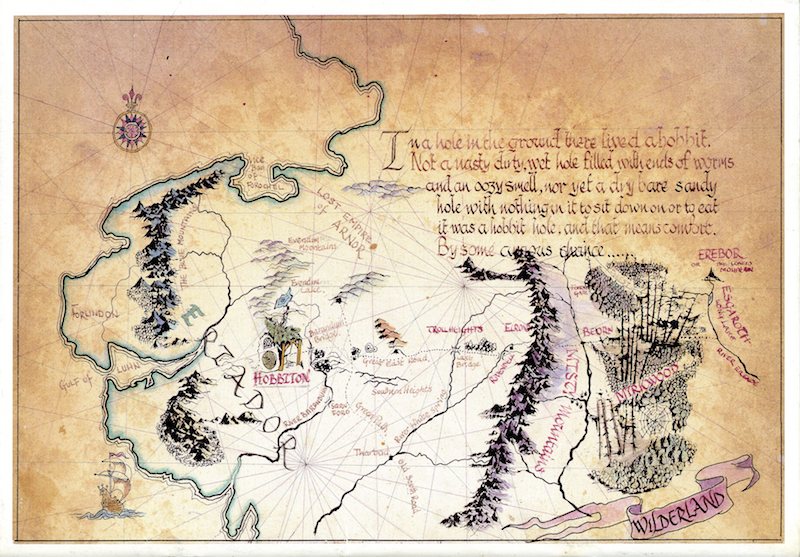 In a hole in the ground there lived a hobbit.
Not a nasty dirty, wet hole filled with ends of worms
and an oozy smell, nor yet a dry bare sandy
hole with nothing in it to sit down on or to eat
it was a hobbit hole, and that means comfort.
By some curious chance......
Ice
Bay
of
FOROCHEL
LOST EMPIRE
of ARNOR
THE BLUE MOUNTAINS
Evendim
Mountains
Evendim
Lake
EREBOR
OR THE LONELY
MOUNTAIN
ESGAROTH
RIVER
FORLINDON
ERIADOR
Bridge
TROLLHEIGHTS
ELROND
BEORN
RIVENDELL
Great East Road
Bridge
GULF of LUHN
HOBBITON
MISTY MOUNTAINS
MIRKWOOD
South Heights
RIVER BARANDUIN
SARN
FORD
Greenway
Tharbad
Old South Road
WILDERLAND